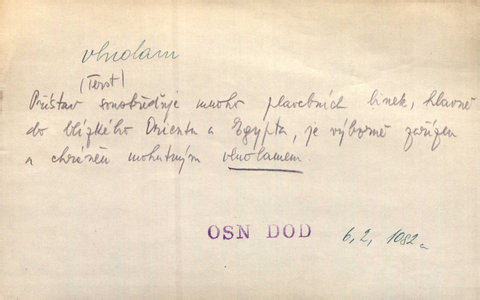 vlnolam
(Terst)
Přístav soustřeďuje mnoho plavebních linek, hlavně
do blízkého Orientu a Egypta, je výborně zařízen
a chráněn mohutným vlnolamem.
OSN DOD 6, 2, 1082a